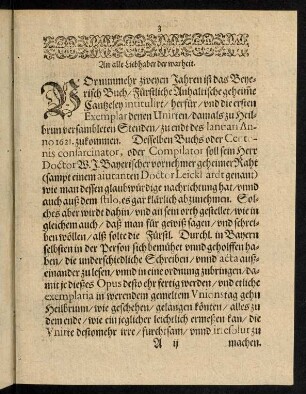 3
An alle Liebhaber der warheit.
VOrnunmehr zweyen Jahren ist das Beye-
risch Buch / Fürstliche Anhaltische geheime
Cantzeley intitulirt / herfür / vnd die ersten
Exemplar denen Unirten / damals zu Heil-
brun versambleten Stenden / zu end des Ianuari An-
no 1621. zukommen. Desselben Buchs oder
consarcinator, oder Compilator soll sein Herr
Doctor W. J. Bayerischer vornehmer geheimer Raht
(sampt einem Doctor Leickl ardt genant)
wie man dessen glaubwürdig nachrichtung hat / vnnd
auch auß dem stilo, es gar klärlich abzunehmen. Sol-
ches aber wird dahin / vnd an sein orth gestellet / wie in
gleichem auch / daß man für gewiß sagen / vnd schrei-
ben wöllen / alß solte die Fürstl. Durchl. in Bayern
selbsten in der Person sich bemühet vnnd geholffen ha-
ben / die underschiedliche Schreiben / vnnd acta aussein-
ander zu lesen / vnnd in eine ordnung zubringen / da-
mit je dieses Opus desto ehr fertig werden / vnd etliche
exemplaria in werendem gemeltem Vnions tag gehn
Heilbrunn / wie geschehen / gelangen könten / alles zu
dem ende / wie ein jeglicher leichtlich ermeßen kan / die
Vnirte desto mehr irre / furchtsam / vnnd irresolut zu
A ij machen.